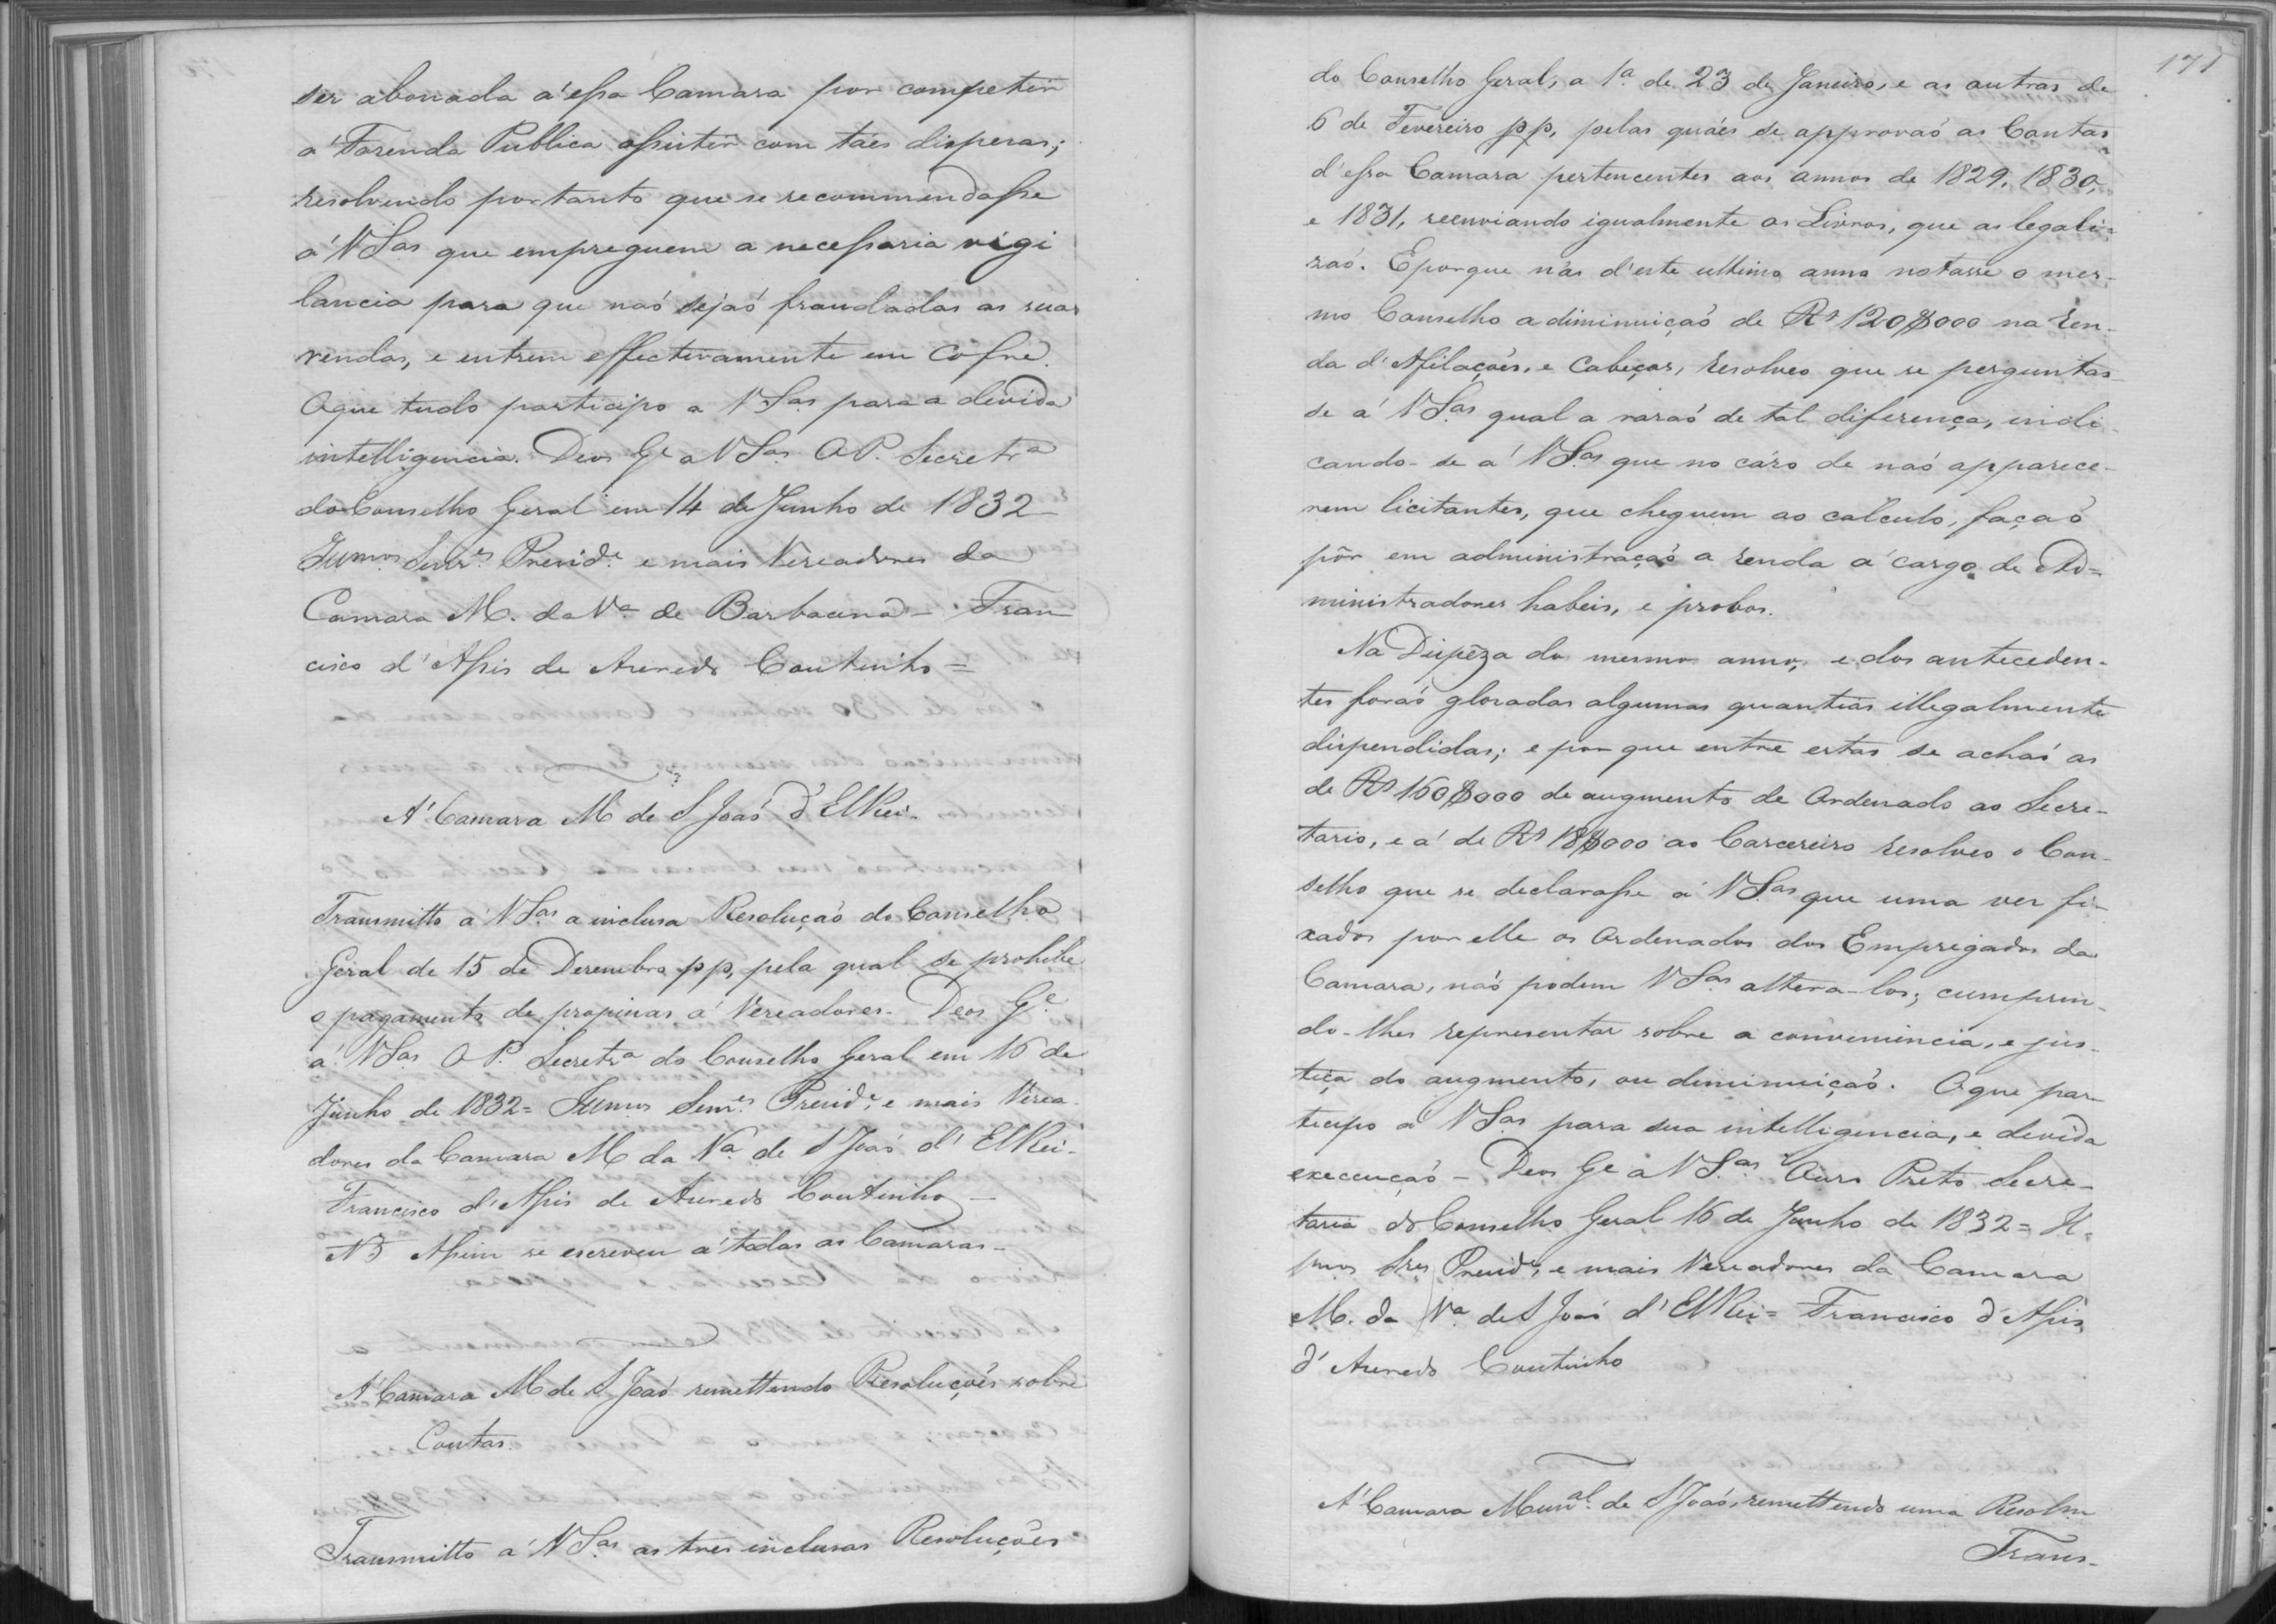 ser abonada a' essa Camara por competir
a' Fazenda Publica assistir com táes dispezas;
resolvendo portanto que se recommendasse
a' VSas que empreguem a necessaria vigi
lancia para que naó sejaó fraudadas as suas
rendas, e entrem effectivamente em Cófre.
Oque tudo participo a VSas para a devida
intelligencia. Deos Ge a VSas OP. Secretra
do Conselho Geral em 14 de Junho de 1832_
Senres Preside e mais Vereadores da
Camara M. da Va de Barbacena - Fran
cisco d'Assis de Azeredo Coutinho =
A' Camara M de S Joaó d'ElRei.
Transmitto a' VSas a inclusa Resoluçaó do Conselho
Geral de 15 de Dezembro pp, pela qual se prohibe
o pagamento de propinas a' Vereadores. Deos Ge
a' VSas O P. Secretra do Conselho Geral em 16 de
Junho de 1832= Senres Preside, e mais Verea-
dores da Camara M da Va de S Joaó d'ElRei-
Francisco d'Assis de Azeredo Coutinho -
NB Assim se escreveu a' todas as Camaras -
A' Camara M de S Joaó remettendo Resoluçoẽs sobre
Contas.
Transmitto a' VSas as tres inclusas Resoluçoẽs
171
do Conselho Geral, a 1a de 23 de Janeiro, e as outras de
6 de Fevereiro pp, pelas quáes se approvaó as Contas
d'essa Camara pertencentes aos annos de 1829, 1830,
e 1831, reenviando igualmente os Livros, que as legali=
zaó. E porque nas d'este ultimo anno notasse o mes-
mo Conselho a diminuiçaó de Rs 120$000 na ren-
da d'Afilaçoẽs, e Cabeças, resolveo que se perguntas-
se a' VSas qual a razaó de tal diferença, indi-
cando-se a' VSas que no cázo de naó apparece-
rem licitantes, que cheguem ao calculo, façaó
pôr em administraçaó a renda a' cargo de Ad=
ministradores habeis, e probos.
Na Dispêza do mesmo anno, e dos anteceden-
tes foraó glozadas algumas quantias illegalmente
dispendidas; e por que entre estas se achaó as
de Rs 160$000 de augmento de Ordenado ao Secre-
tario, e a' de Rs 18$000 ao Carcereiro resolveo o Con-
selho que se declarasse a' VSas que uma vez fi-
xados por elle os Ordenados dos Empregados da
Camara, naó podem VSas altera-los; cumprin-
do-lhes representar sobre a conveniencia, e jus-
tiça do augmento, ou diminuiçaó. Oque par-
tecipo a' VSas para sua intelligencia, e devida
execuçaó - Deos Ge a VSas Ouro Preto Secre-
taria do Conselho Geral 16 de Junho de 1832 = Il.
mos Sres Preside, e mais Vereadores da Camara
M. da Va de S Joaó d'ElRei = Francisco d'Assis
d'Azeredo Coutinho
A' Camara Munal de S Joaó, remettendo uma Resolm
Trans-